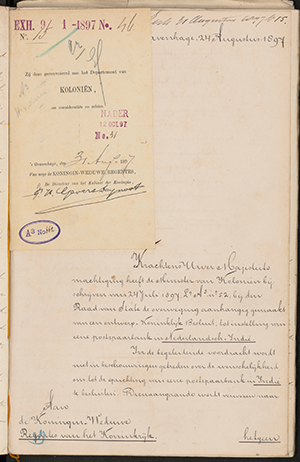 EXH. 31/8-1897 No. 46
Nº. 15
Exh. 31 Augustus 1897 Nº 15.
's Gravenhage, 24 Augustus 1897
Bij dezen gerenvoyeerd aan het Departement van
KOLONIËN,
om consideratie en advies
NADER
12 OCT. 97
No. 31
's Gravenhage, den 31 Aug. 1897
Van wege de KONINGIN-WEDUWE REGENTES,
De Directeur van het Kabinet der Koningin
Krachtens Uwer Majesteits
machtiging heeft de Minister van Kolonien bij
schrijven van 24 Juli 1897, Lª Aª nº 52 bij den
Raad van State de overweging aanhangig gemaakt
van een ontwerp-Koninklijk Besluit, tot instelling van
eene postspaarbank in Nederlandsch-Indië
In de begeleidende voordracht wordt
niet in beschouwingen getreden over de wenschelijkheid
om tot de oprichting van eene postspaarbank in Indië
te besluiten. Dienaangaande wordt verwezen naar
Aan
de Koningin-Weduwe
Regentes van het Koninkrijk.
hetgeen